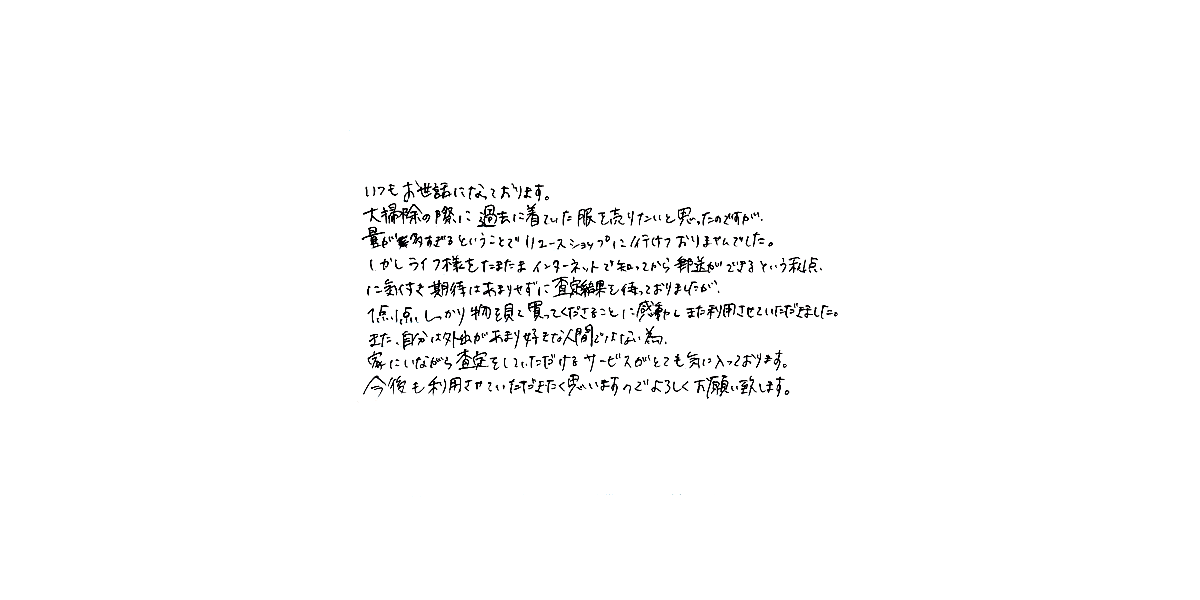 いつもお世話になっております。
大掃除の際に過去に着ていた服を売りたいと思ったのですが、
量が多すぎるということでリユースショップに行けておりませんでした。
しかしライフ様をたまたまインターネットで知ってから郵送ができるという利点、
に気付き期待はあまりせずに査定結果を待っておりましたが、
1点1点しっかり物を見て買ってくださることに感動しまた利用させていただきました。
また、自分は外出があまり好きな人間ではない為、
家にいながら査定をしていただけるサービスがとても気に入っております。
今後も利用させていただきたく思いますのでよろしくお願い致します。